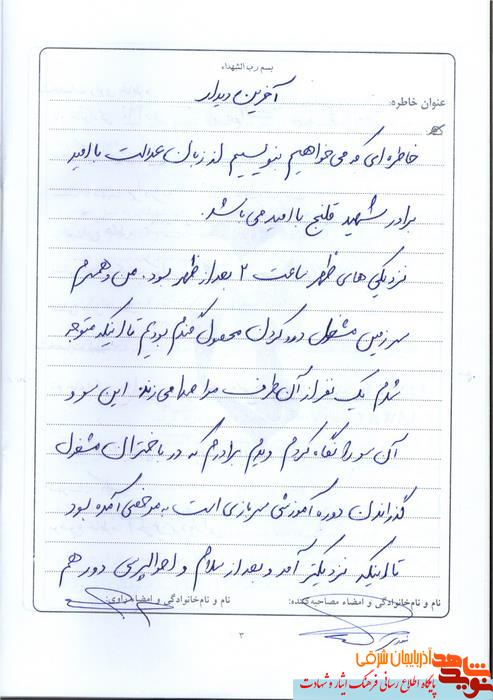 بسم رب الشهداء
عنوان خاطره: آخرین دیدار
خاطره ای که می خواهیم بنویسیم از زبان عدالت باامید
برادر شهید قلنج باامید می باشد.
نزدیکی های ظهر ساعت ۲ بعد از ظهر بود. من و همسرم
سر زمین مشغول درو کردن محصول گندم بودیم تا اینکه متوجه
شدم یک نفر از آن طرف مرا صدا می زند. این سو و
آن سو را نگاه کردم دیدم برادرم که در باختران مشغول
گذراندن دوره آموزشی سربازی است به مرخصی آمده بود
تا اینکه نزدیکتر آمد و بعد از سلام و احوالپرسی دور هم
نام و نام خانوادگی و امضاء مصاحبه کننده: نام و نام خانوادگی و امضاء راوی:
۳
نوید شاهد آذربایجان شرقی
پایگاه اطلاع رسانی فرهنگ ایثار و شهادت